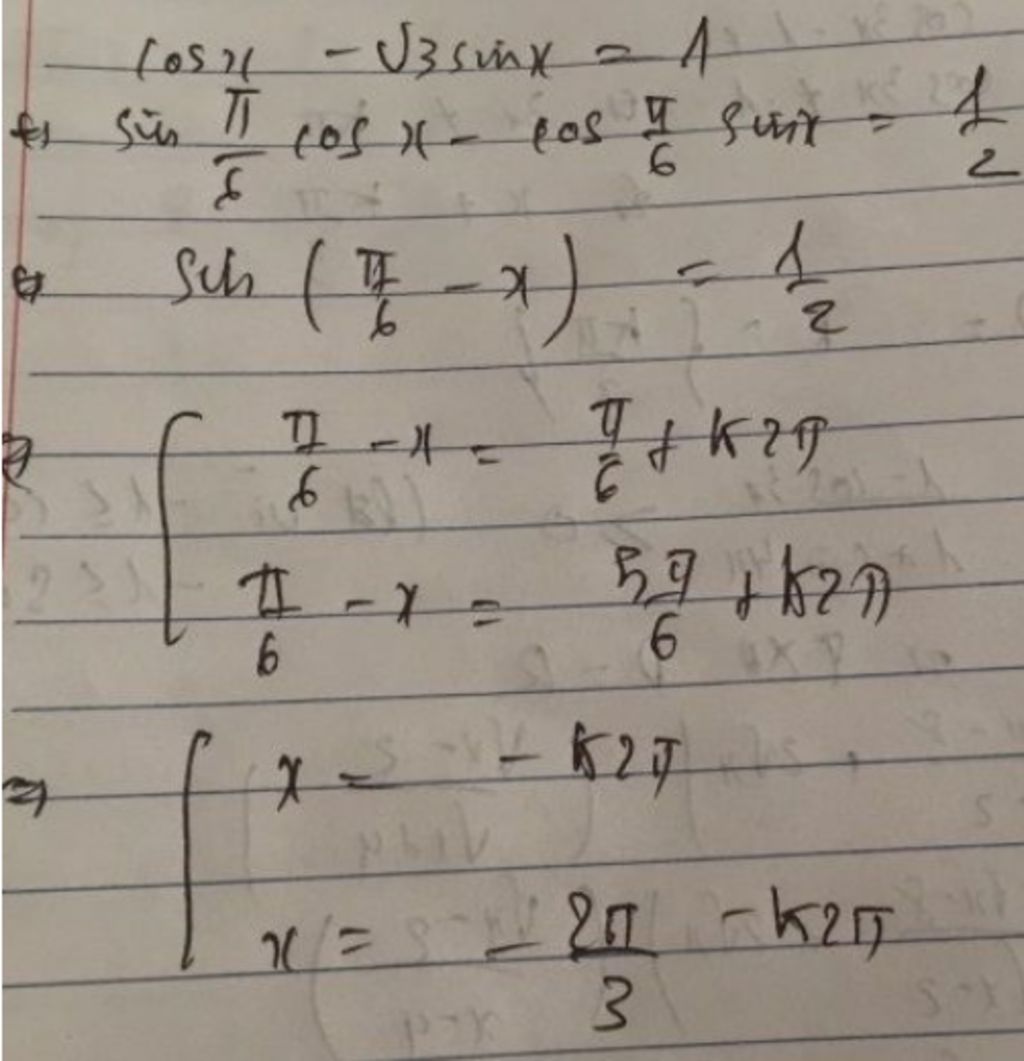 cos x - √3 sin x = 1
⇔ sin π/6 cos x - cos π/6 sin x = 1/2
⇔ sin (π/6 - x) = 1/2
⇔ [ π/6 - x = π/6 + k2π
π/6 - x = 5π/6 + k2π
⇔ [ x = - k2π
x = - 2π/3 - k2π